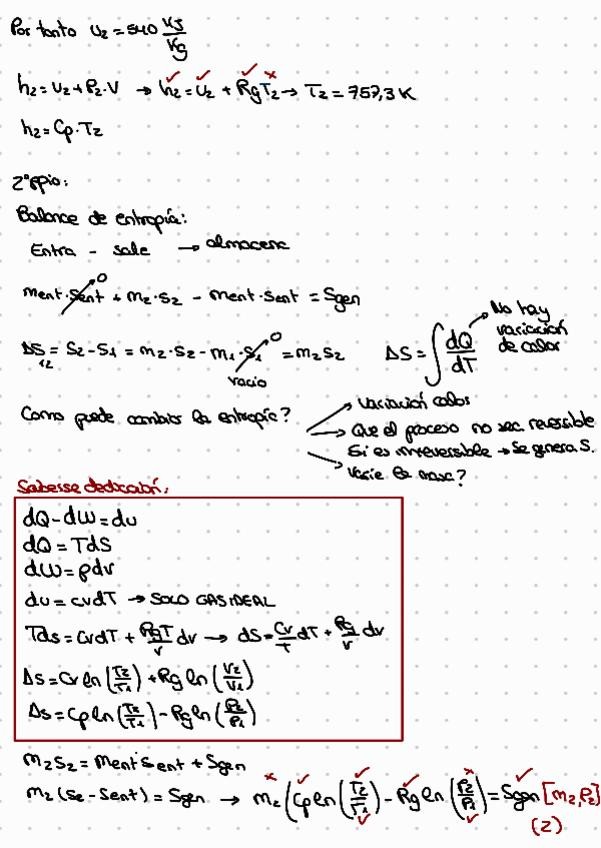 Por tanto u2 = 540 KJ/Kg
h2 = u2 + P2·V → h2 = u2 + RgT2 → T2 = 757,3 K
h2 = Cp·T2
2º ppio:
Balance de entropía:
Entra - sale → almacena
ment·sent + m2·s2 - ment·sent = Sgen
0
ΔS12 = S2 - S1 = m2·s2 - m1·s1 = m2s2 ΔS = ∫ dQ/dT
0
vacío
No hay
variación
de calor
Como puede cambiar la entropía?
variación calor
Que el proceso no sea reversible
Si es irreversible → Se genera S.
Varíe la masa?
Saberse
dQ - dW = du
dQ = TdS
dW = pdv
du = cvdT → SOLO GAS IDEAL
Tds = CvdT + RgT/v dv → ds = Cv/T dT + Rg/v dv
Δs = Cv ln(T2/T1) + Rg ln(V2/V1)
Δs = Cp ln(T2/T1) - Rg ln(P2/P1)
m2s2 = ment·sent + Sgen
m2(s2 - sent) = Sgen → m2(Cp ln(T2/T1) - Rg ln(P2/P1) = Sgen [m2,P2]
(2)